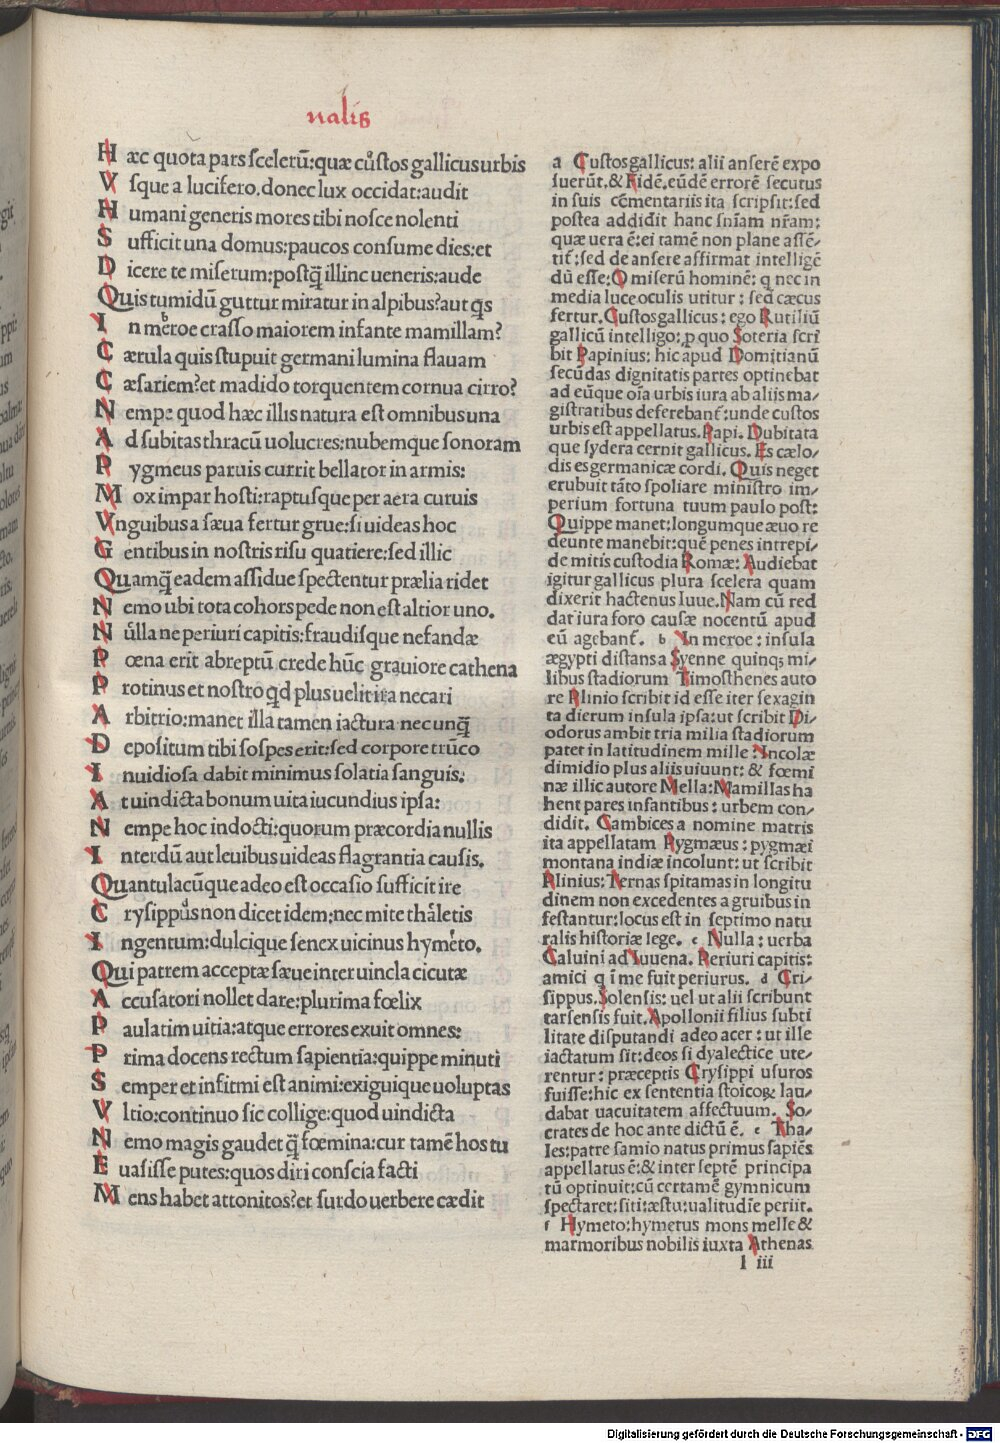 nalis
Hæc quota pars scelerū:quæ custos gallicus urbis
Vsque a lucifero.donec lux occidat:audit
Humani generis mores tibi nosce nolenti
Sufficit una domus:paucos consume dies:et
Dicere te miserum:postq̄ illinc ueneris:aude
Quis tumidū guttur miratur in alpibus?aut qs
In meroe crasso maiorem infante mamillam?
Cærula quis stupuit germani lumina flauam
Cæsariem?et madido torquentem cornua cirro?
Nempe quod hæc illis natura est omnibus una
Ad subitas thracū uolucres:nubemque sonoram
Pygmeus paruis currit bellator in armis:
Mox impar hosti:raptusque per aera curuis
Vnguibus a sæua fertur grue:si uideas hoc
Gentibus in nostris risu quatiere:sed illic
Quamq̄ eadem assidue spectentur prælia ridet
Nemo ubi tota cohors pede non est altior uno.
Nulla ne periuri capitis:fraudisque nefandæ
Pœna erit abreptū crede hūc grauiore cathena
Protinus et nostro qd plus uelit ira necari
Arbitrio:manet illa tamen iactura nec unq̄
Depositum tibi sospes erit:sed corpore trūco
Inuidiosa dabit minimus solatia sanguis:
At uindicta bonum uita iucundius ipsa:
Nempe hoc indocti:quorum præcordia nullis
Interdū aut leuibus uideas flagrantia causis.
Quantulacūque adeo est occasio sufficit ire
Crysippus non dicet idem:nec mite thaletis
Ingentum:dulcique senex uicinus hymeto.
Qui patrem acceptæ sæue inter uincla cicutæ
Accusatori nollet dare:plurima fœlix
Paulatim uitia:atque errores exuit omnes:
Prima docens rectum sapientia:quippe minuti
Semper et infirmi est animi:exiguique uoluptas
Vltio:continuo sic collige:quod uindicta
Nemo magis gaudet q̄ fœmina:cur tamē hos tu
Euasisse putes:quos diri conscia facti
Mens habet attonitos:et surdo uerbere cædit
a Custos gallicus: alii anserē expo
suerūt.& Fidē.eūdē errorē secutus
in suis cēmentariis ita scripsit:sed
postea addidit hanc sniam nram:
quæ uera ē:ei tamē non plane assē-
tit:sed de ansere affirmat intelligē
dū esse:O miserū hominē: q nec in
media luce oculis utitur : sed cæcus
fertur.Custos gallicus: ego Rutiliū
gallicū intelligo: p quo Soteria scri
bit Papinius: hic apud Domitianū
secūdas dignitatis partes optinebat
ad eūque oīa urbis iura ab aliis ma-
gistratibus deferebant:unde custos
urbis est appellatus.Papi.Dubitata
que sydera cernit gallicus. Es cælo-
dis es germanicæ cordi. Quis neget
erubuit tāto spoliare ministro im-
perium fortuna tuum paulo post:
Quippe manet:longumque æuo re
deunte manebit:quē penes intrepi-
de mitis custodia Romæ: Audiebat
igitur gallicus plura scelera quam
dixerit hactenus Iuue.Nam cū red
dat iura foro causæ nocentū apud
eū agebant. b In meroe : insula
ægypti distans a Syenne quinq; mi-
libus stadiorum Timosthenes auto
re Plinio scribit id esse iter sexagin
ta dierum insula ipsa:ut scribit Di-
odorus ambit tria milia stadiorum
patet in latitudinem mille :Incolæ
dimidio plus aliis uiuunt: & fœmi
næ illic autore Mella:Mamillas ha
hent pares infantibus : urbem con-
didit. Cambices a nomine matris
ita appellatam Pygmæus : pygmæi
montana indiæ incolunt: ut scribit
Plinius: Ternas spitamas in longitu
dinem non excedentes a gruibus in
festantur:locus est in septimo natu
ralis historiæ lege. c Nulla : uerba
Caluini ad Iuuena. Periuri capitis:
amici q ī me fuit periurus. d Cri-
sippus.Solensis: uel ut alii scribunt
tarsensis fuit.Apollonii filius subti
litate disputandi adeo acer : ut ille
iactatum sit:deos si dyalectice ute-
rentur : præceptis Crysippi usuros
fuisse:hic ex sententia stoicoꝝ lau-
dabat uacuitatem affectuum. So-
crates de hoc ante dictū ē. e Tha-
les:patre samio natus primus sapiēs
appellatus ē:& inter septē principa
tū optinuit:cū certamē gymnicum
spectaret:siti:æstu:ualitudie periit.
f Hymeto:hymetus mons melle &
marmoribus nobilis iuxta Athenas
l iii
Digitalisierung gefördert durch die Deutsche Forschungsgemeinschaft - DFG